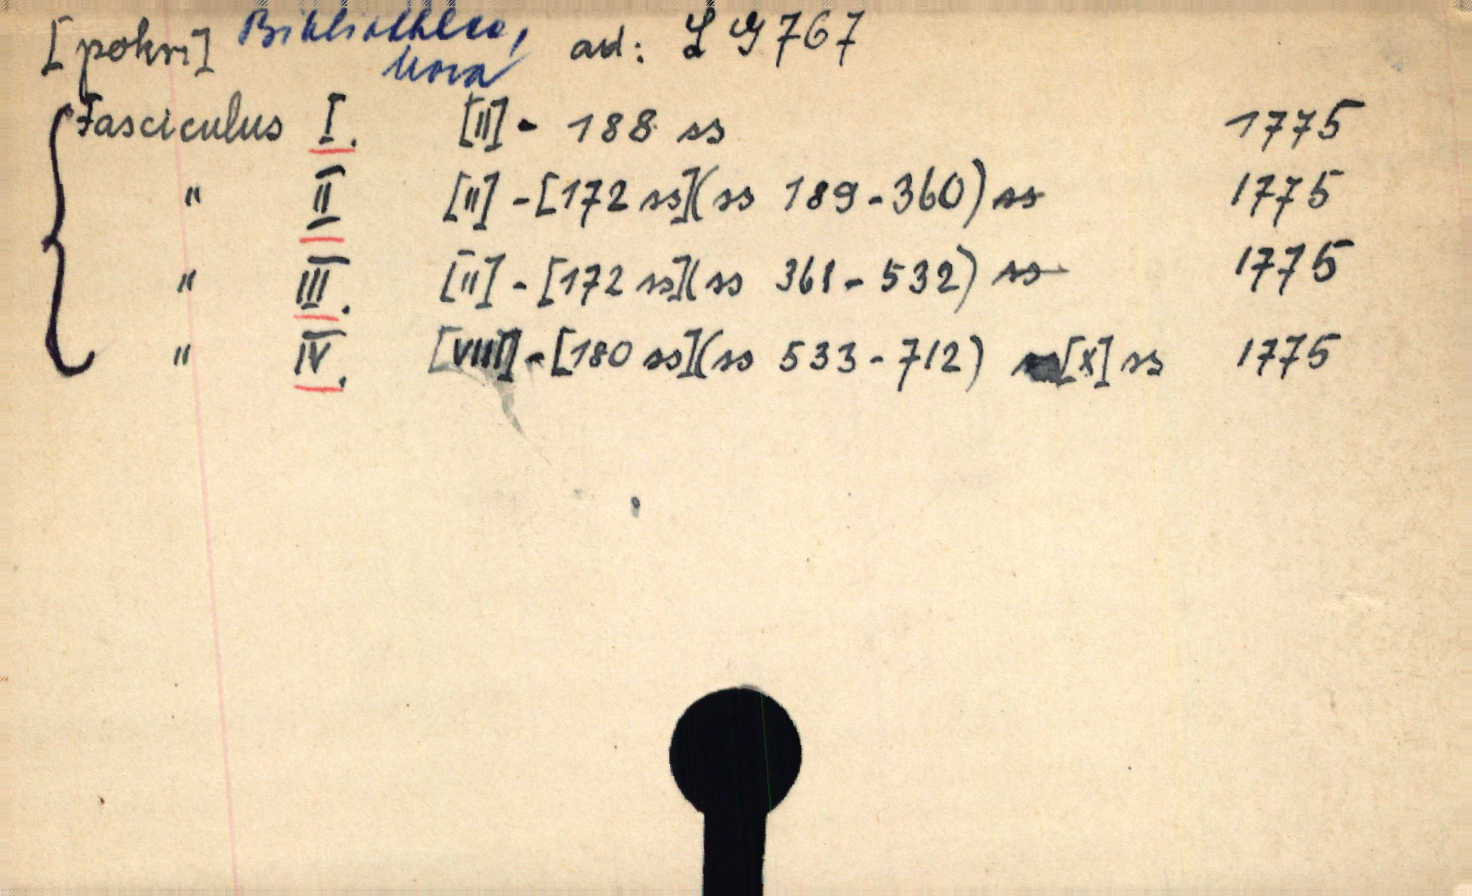 [pokr.] Bibliotheca, ad: LG 767
Nova
Fasciculus I. [II] - 188 ss 1775
" II [II] - [172 ss](ss 189-360) ss 1775
" III. [II] - [172 ss](ss 361-532) ss 1775
" IV. [VIII] - [180 ss](ss 533-712) [X] ss 1775